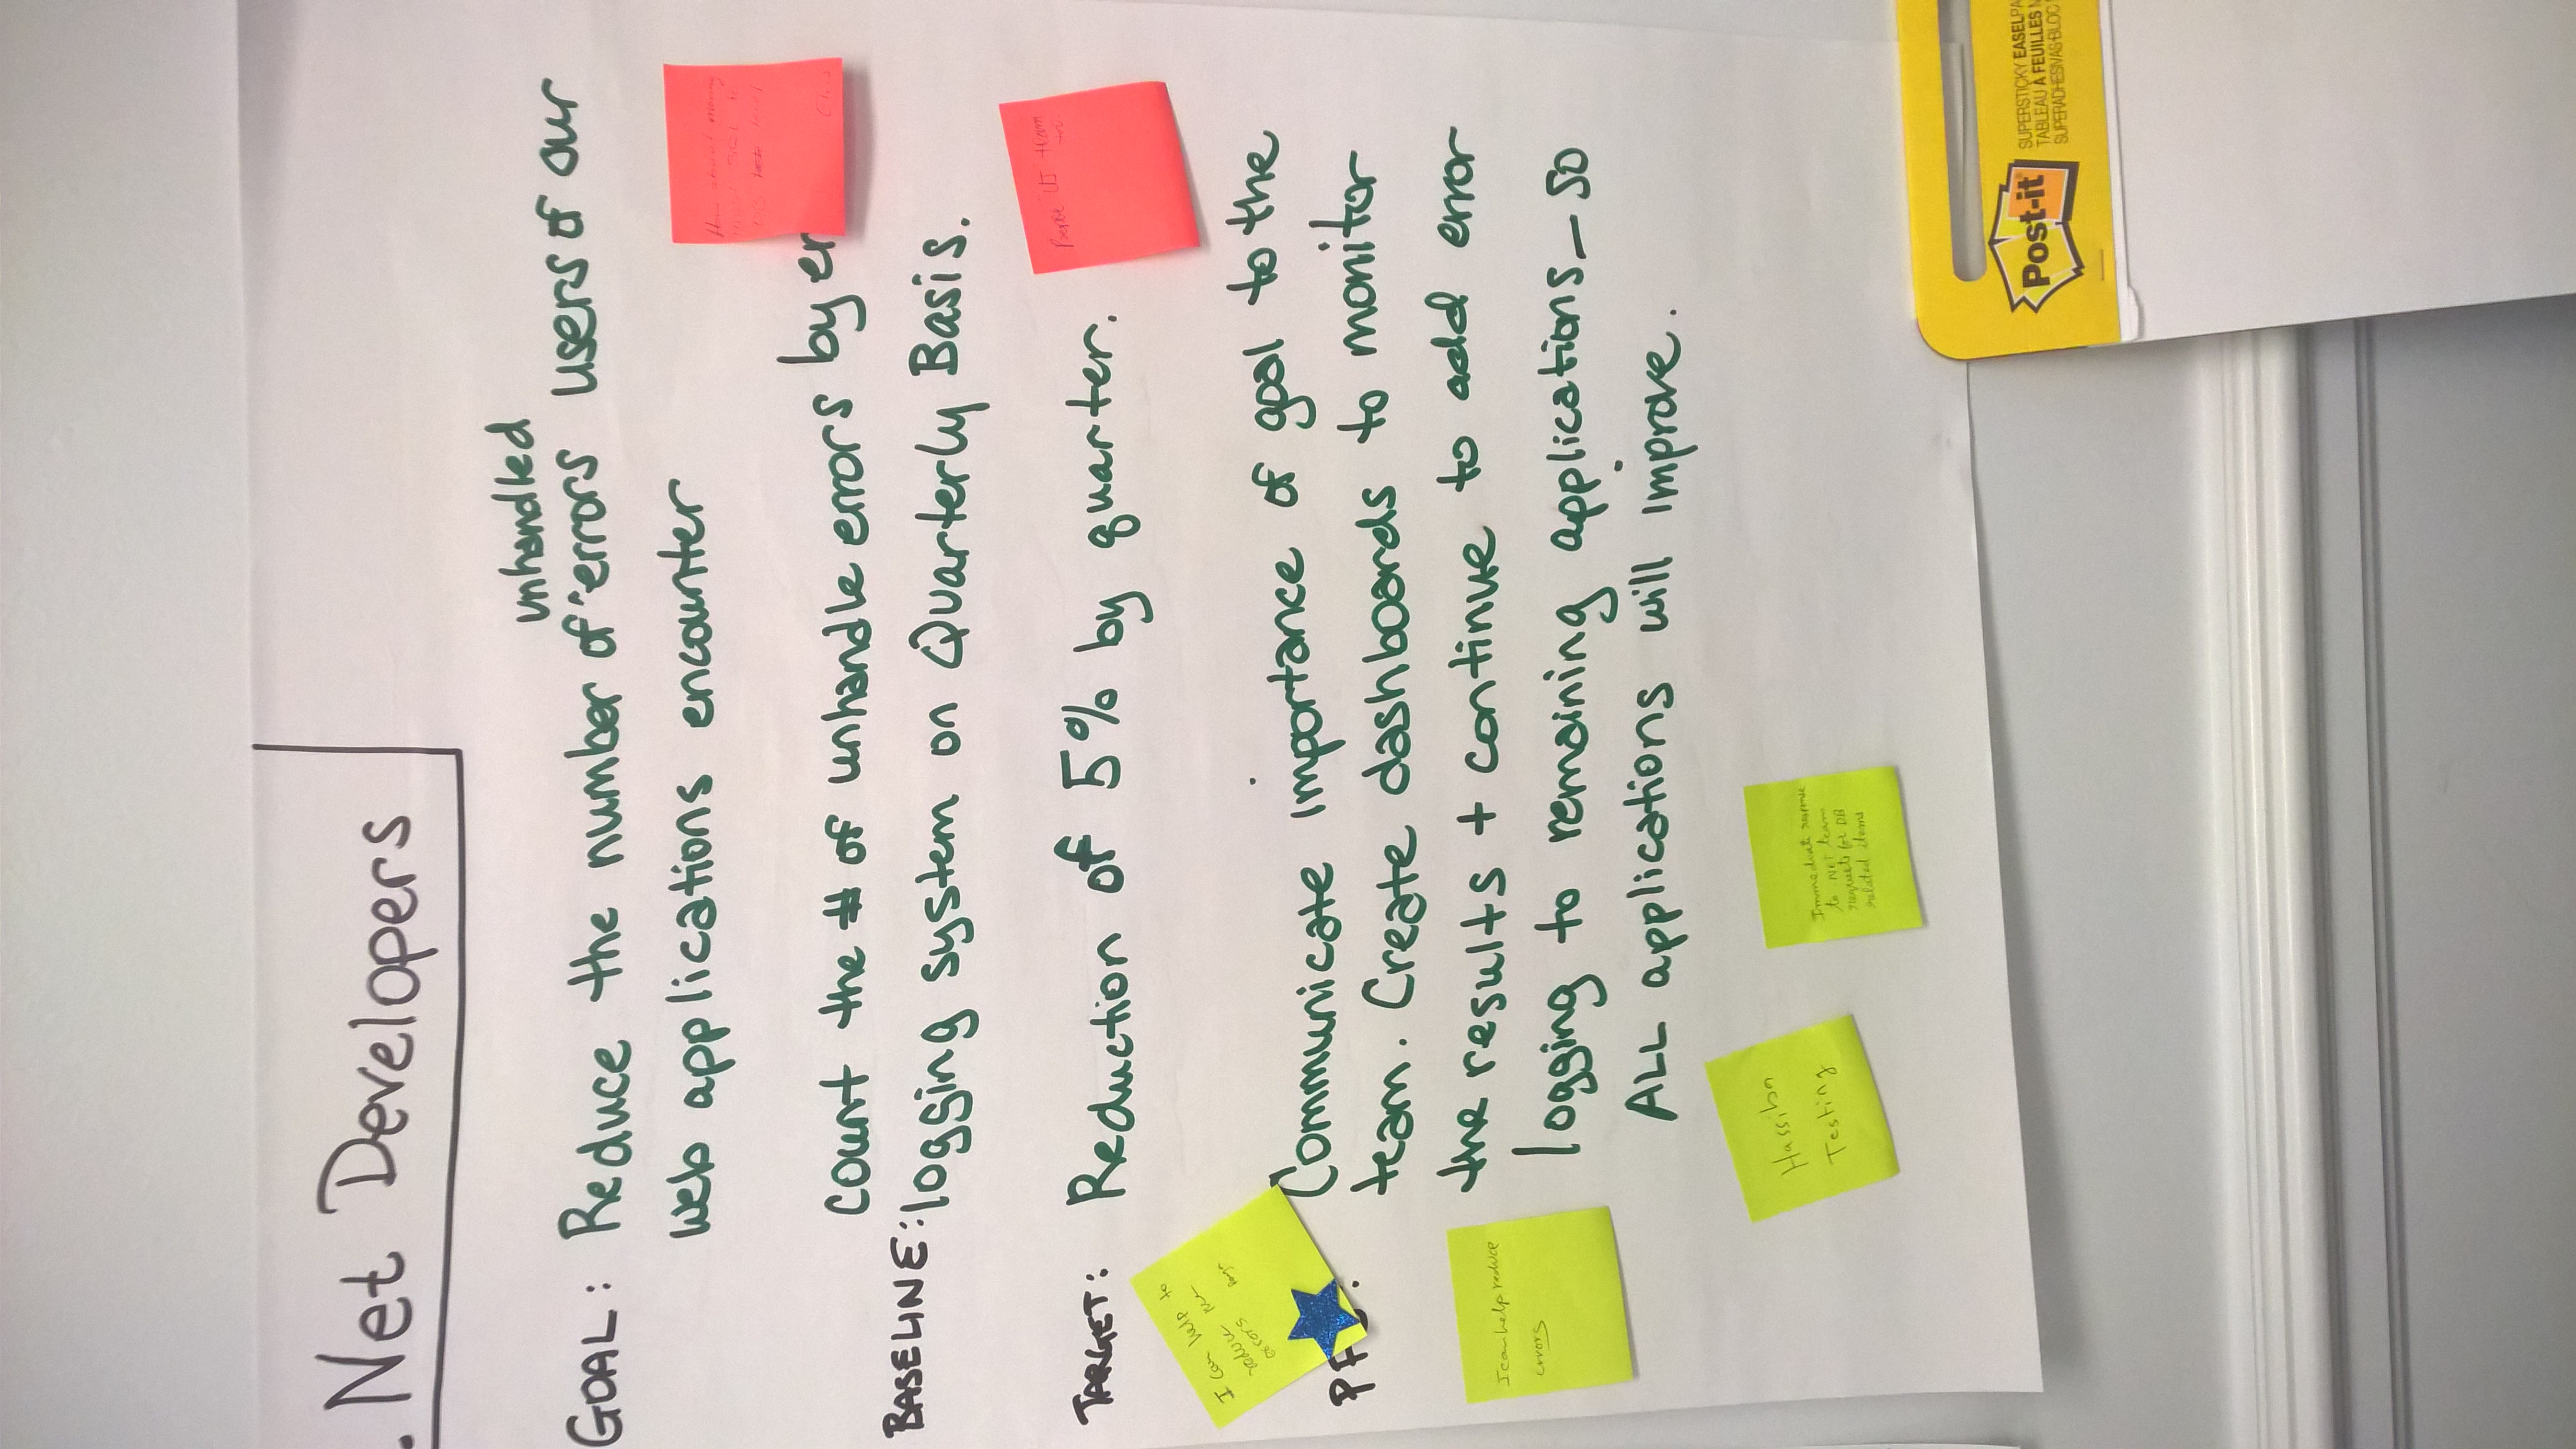 . Net Developers
unhandled
GOAL: Reduce the number of errors users of our
web applications encounter
How about moving
count the # of unhandle errors by er
BASELINE: logging system on Quarterly Basis.
TARGET: Reduction of 5% by quarter.
UI team
I can help to
reduce
errors
Communicate importance of goal to the
team. Create dashboards to monitor
the results + continue to add error
logging to remaining applications — so
ALL applications will improve.
I can help reduce
errors
Hassiba
Testing
Immediate response
to NET team
requests for DB
related items
Post-it
SUPERSTICKY EASELPA
TABLEAU À FEUILLES M
SUPERADHESIVAS BLOC